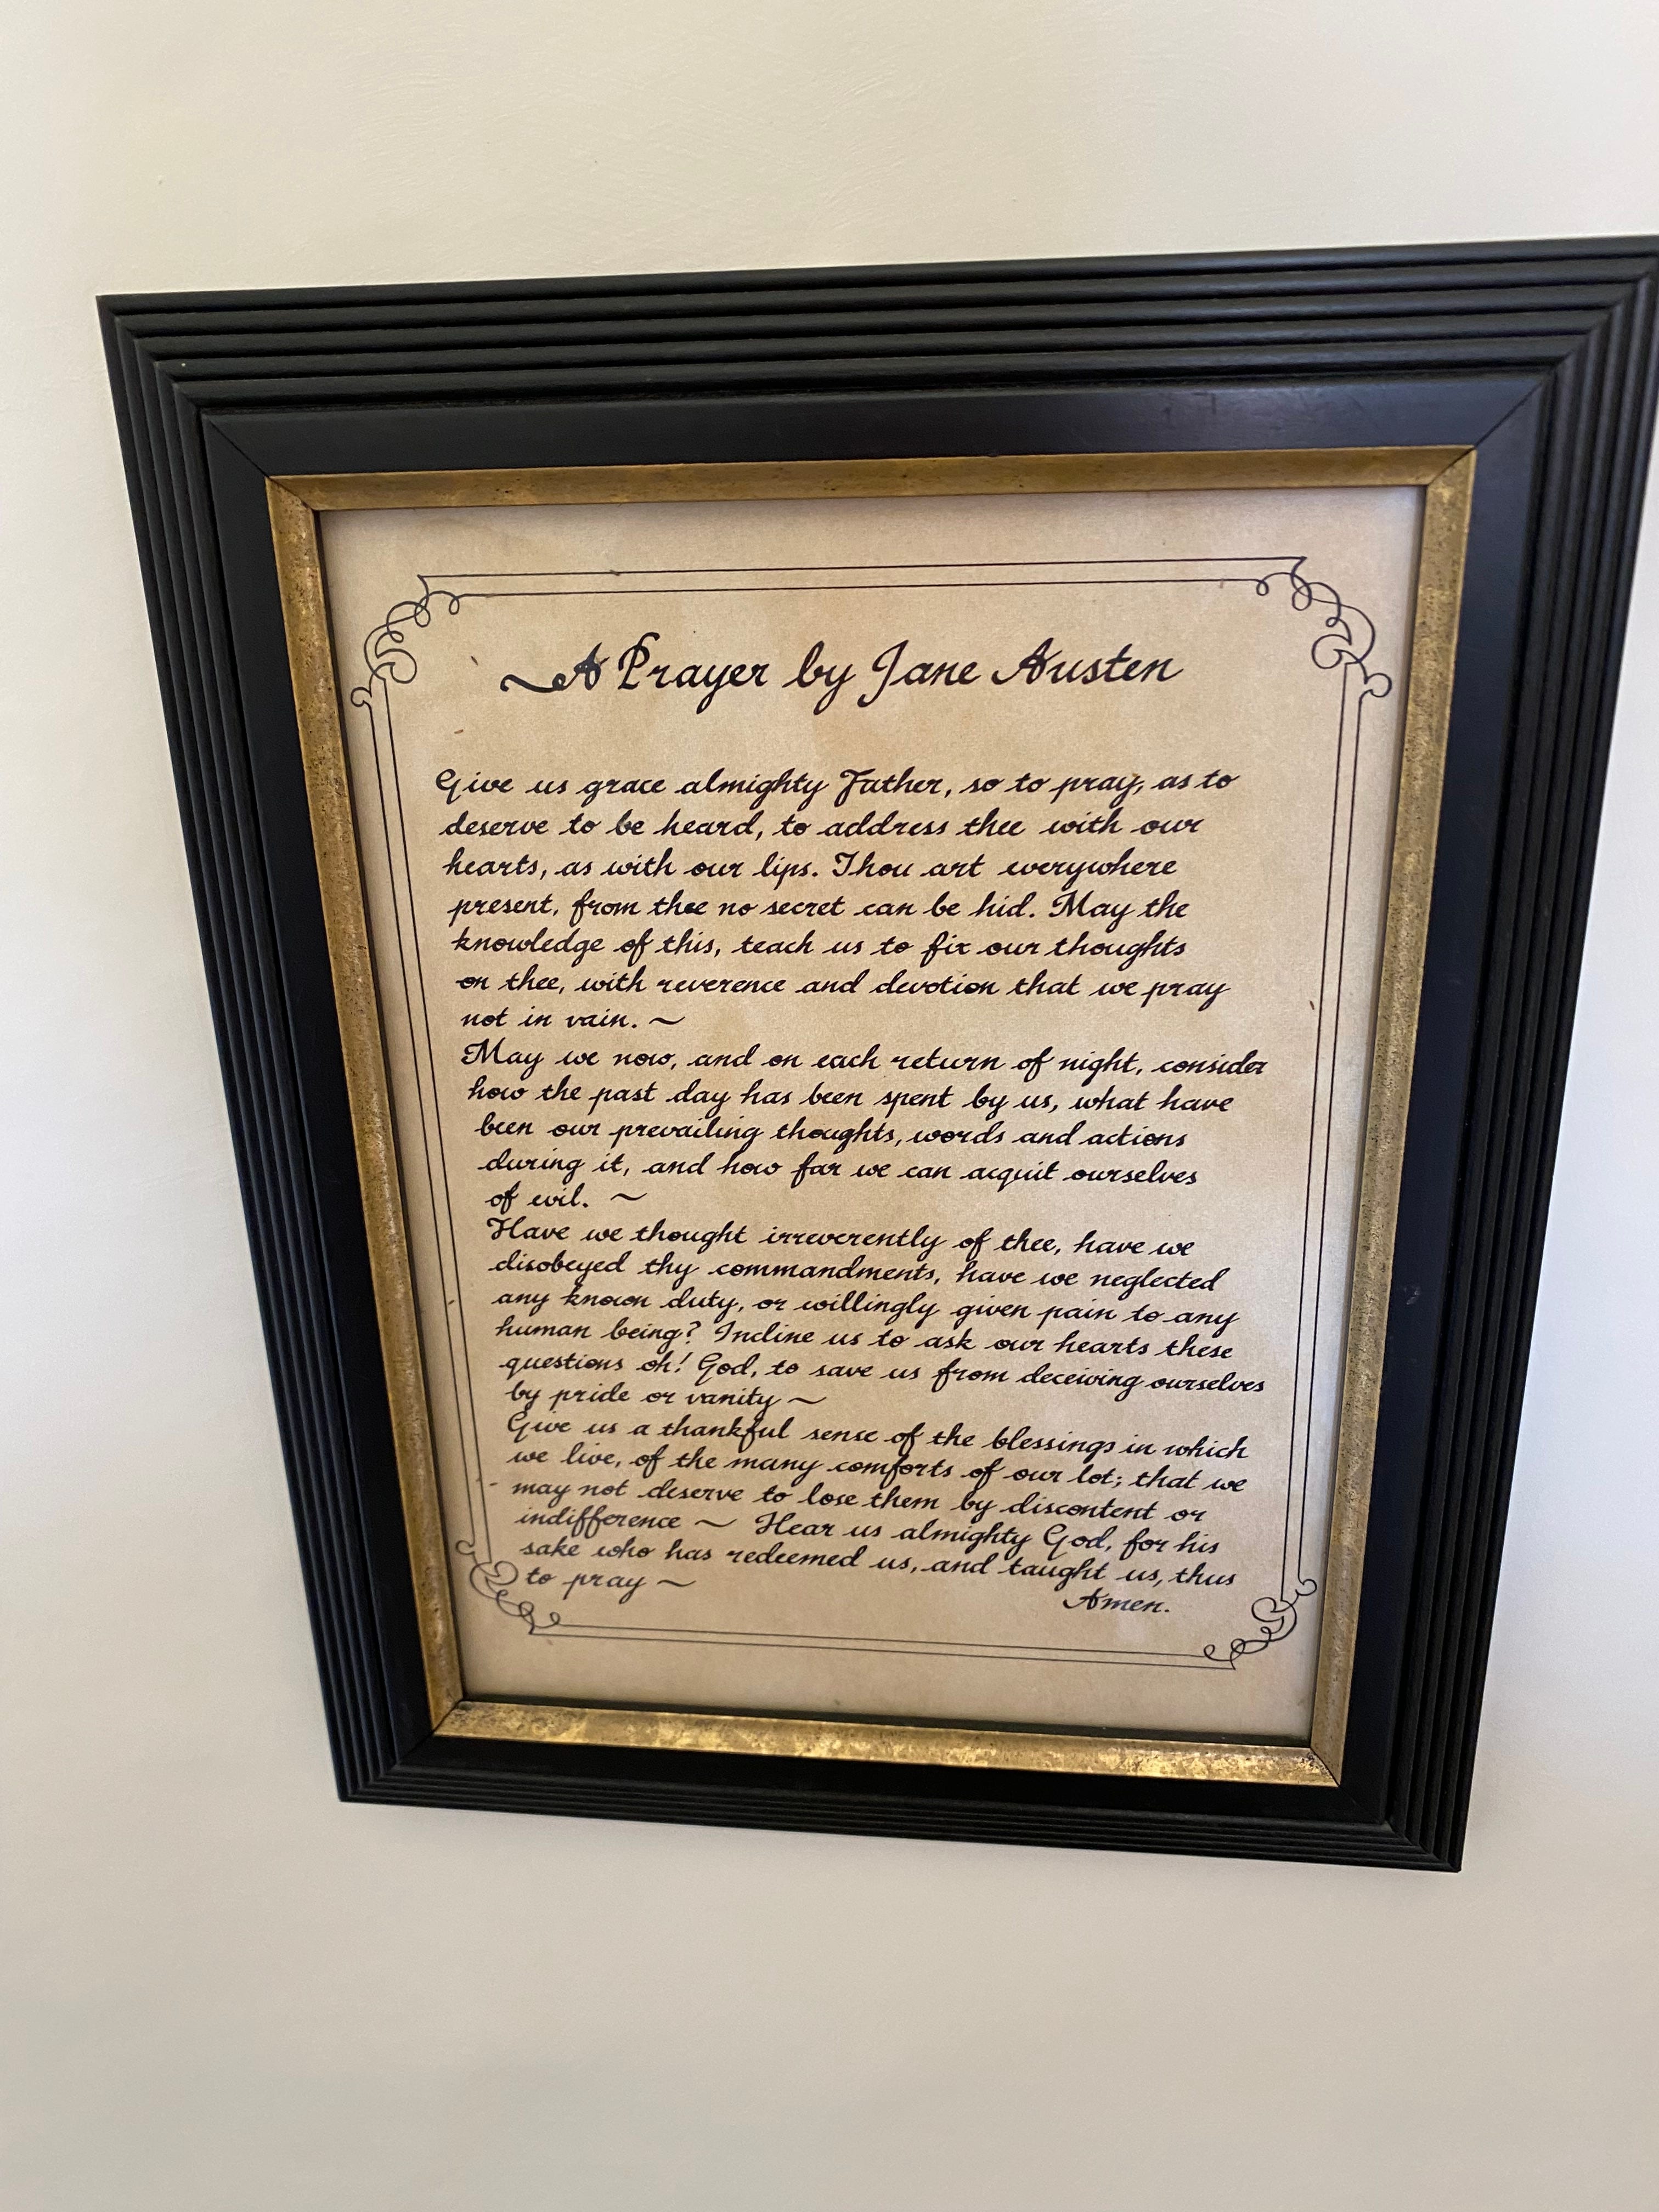 A Prayer by Jane Austen
Give us grace almighty Father, so to pray, as to
deserve to be heard, to address thee with our
hearts, as with our lips. Thou art everywhere
present, from thee no secret can be hid. May the
knowledge of this, teach us to fix our thoughts
on thee, with reverence and devotion that we pray
not in vain. ~
May we now, and on each return of night, consider
how the past day has been spent by us, what have
been our prevailing thoughts, words and actions
during it, and how far we can acquit ourselves
of evil. ~
Have we thought irreverently of thee, have we
disobeyed thy commandments, have we neglected
any known duty, or willingly given pain to any
human being? Incline us to ask our hearts these
questions oh! God, to save us from deceiving ourselves
by pride or vanity ~
Give us a thankful sense of the blessings in which
we live, of the many comforts of our lot; that we
may not deserve to lose them by discontent or
indifference ~ Hear us almighty God, for his
sake who has redeemed us, and taught us, thus
to pray ~
Amen.